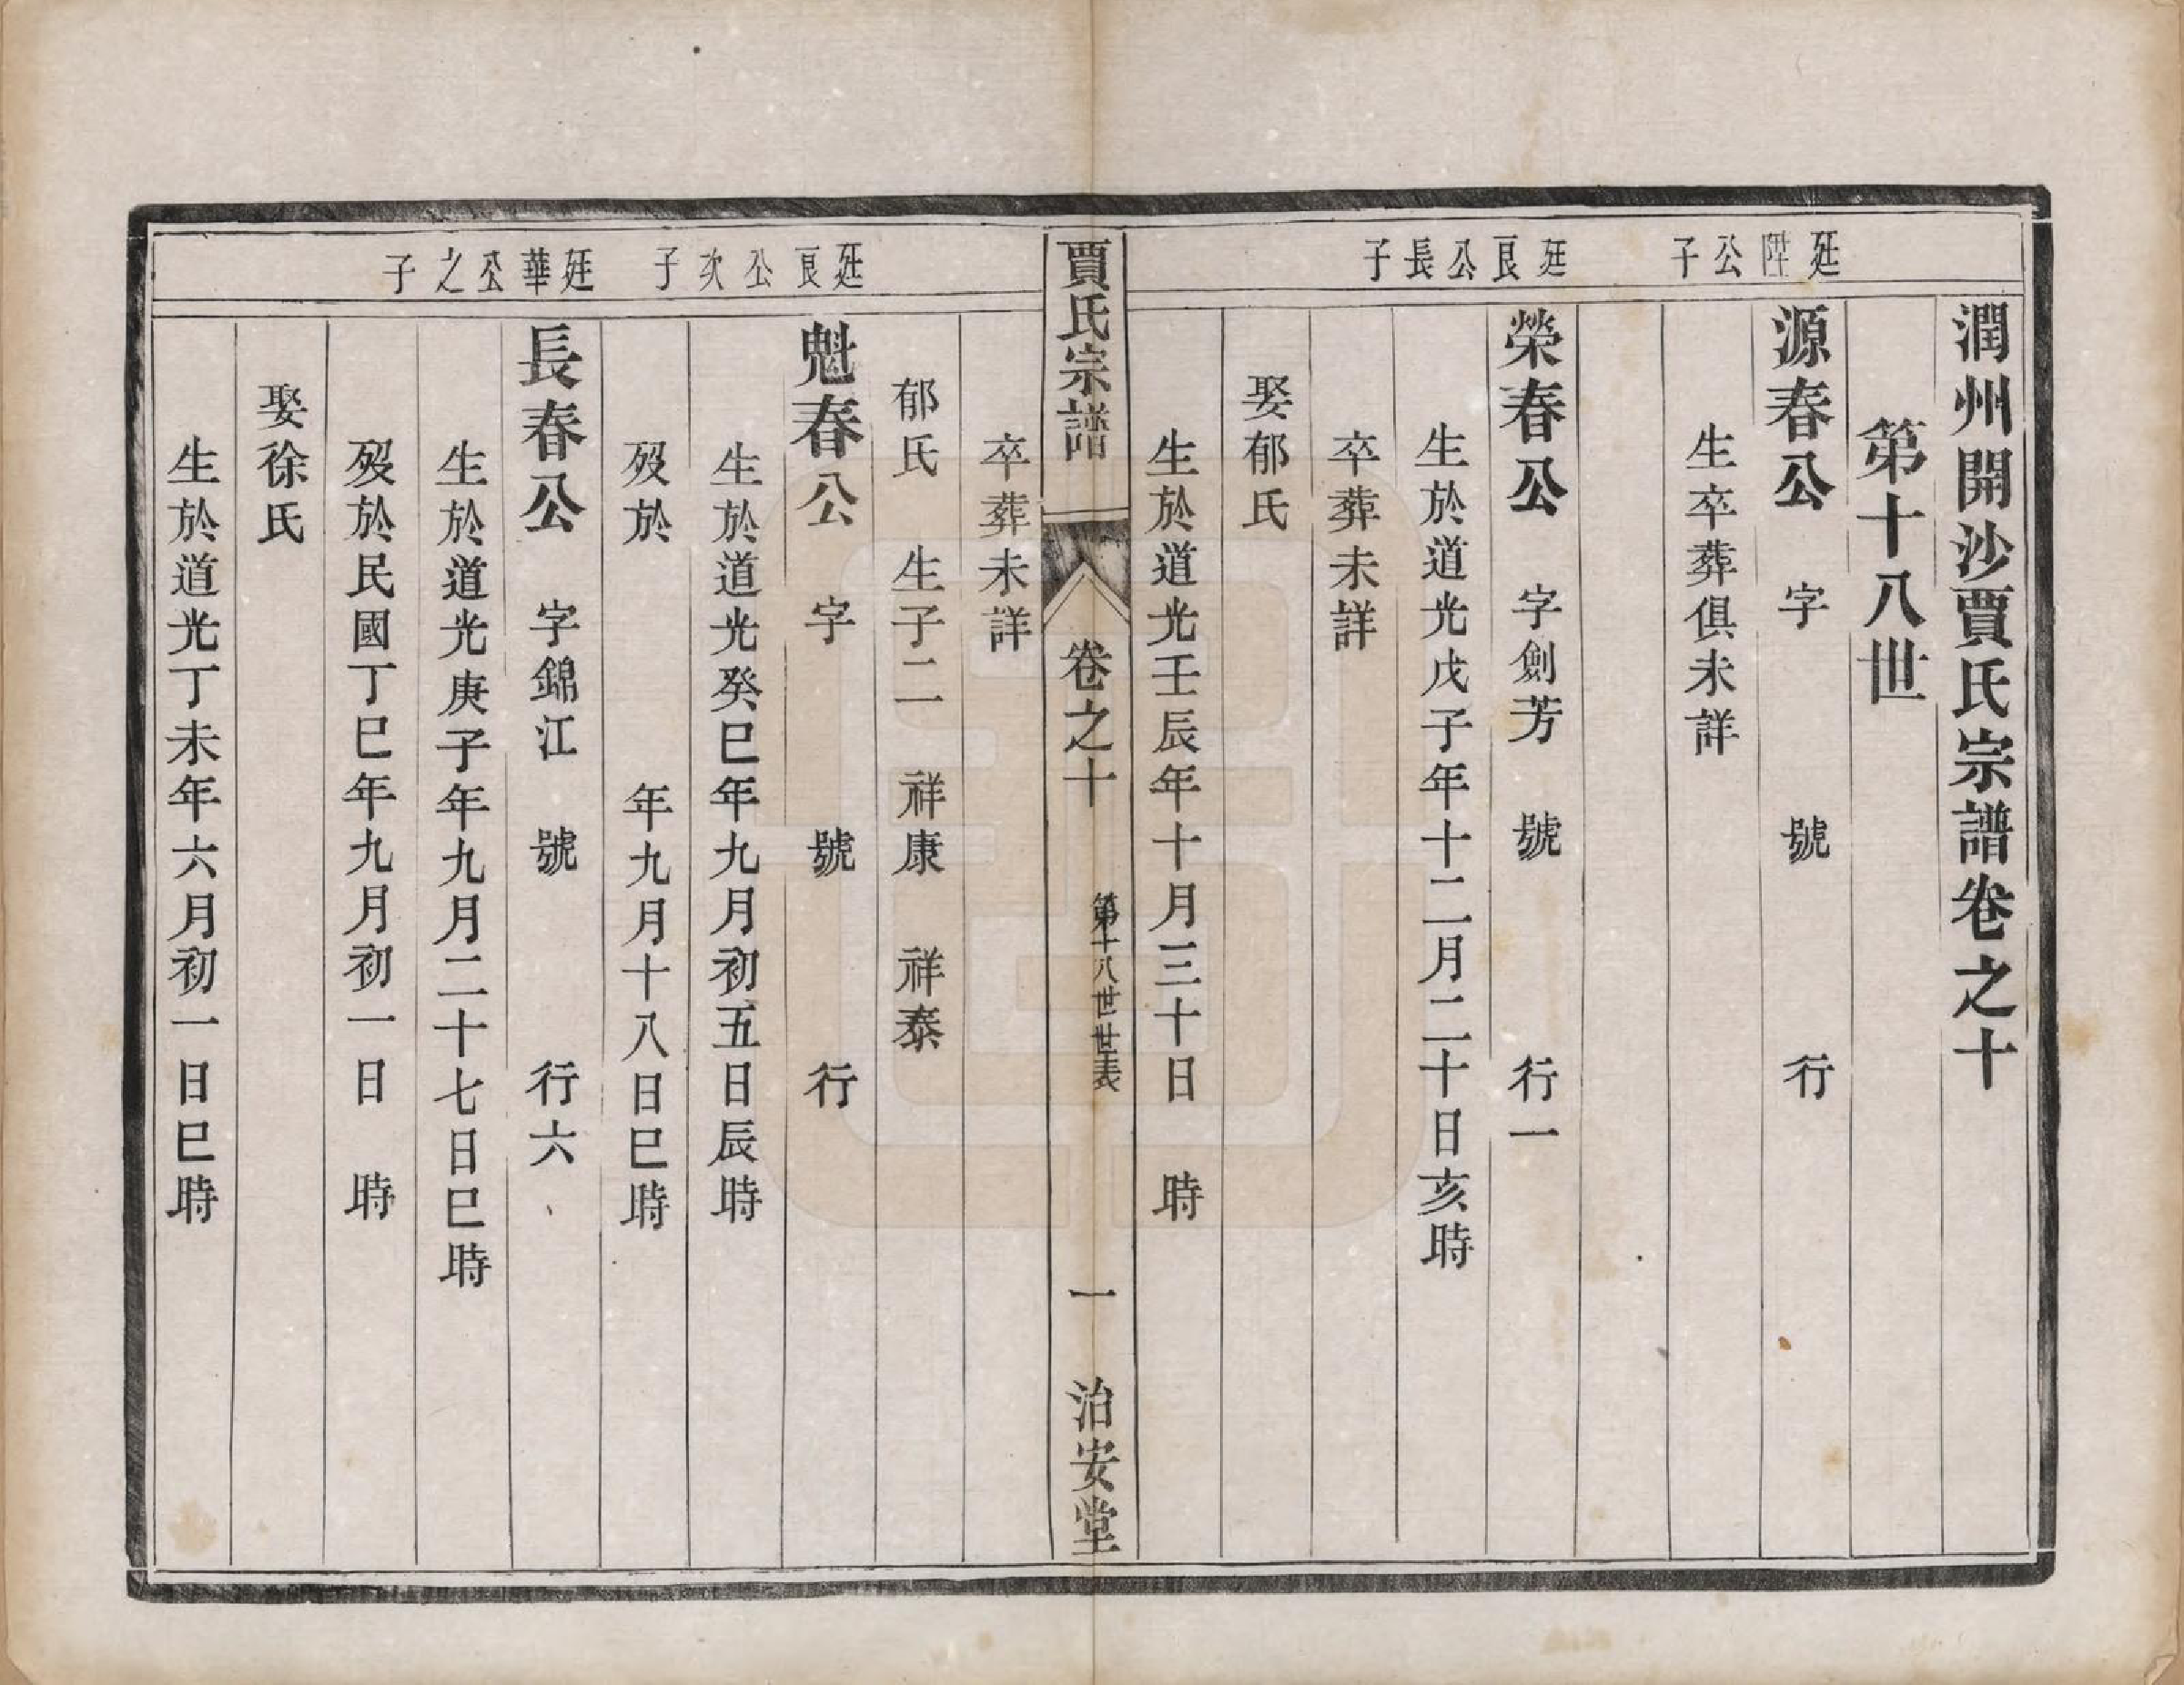 潤州開沙賈氏宗譜卷之十
第十八世
廷陞公子
源春公 字 號 行
生卒葬俱未詳
廷良公長子
榮春公 字劍芳 號 行一
生於道光戊子年十二月二十日亥時
卒葬未詳
娶郁氏
生於道光壬辰年十月三十日 時
賈氏宗譜 卷之十 第十八世世表 一 治安堂
卒葬未詳
郁氏 生子二 祥康 祥泰
廷良公次子
魁春公 字 號 行
生於道光癸巳年九月初五日辰時
歿於 年九月十八日巳時
廷華公之子
長春公 字錦江 號 行六
生於道光庚子年九月二十七日巳時
歿於民國丁巳年九月初一日 時
娶徐氏
生於道光丁未年六月初一日巳時